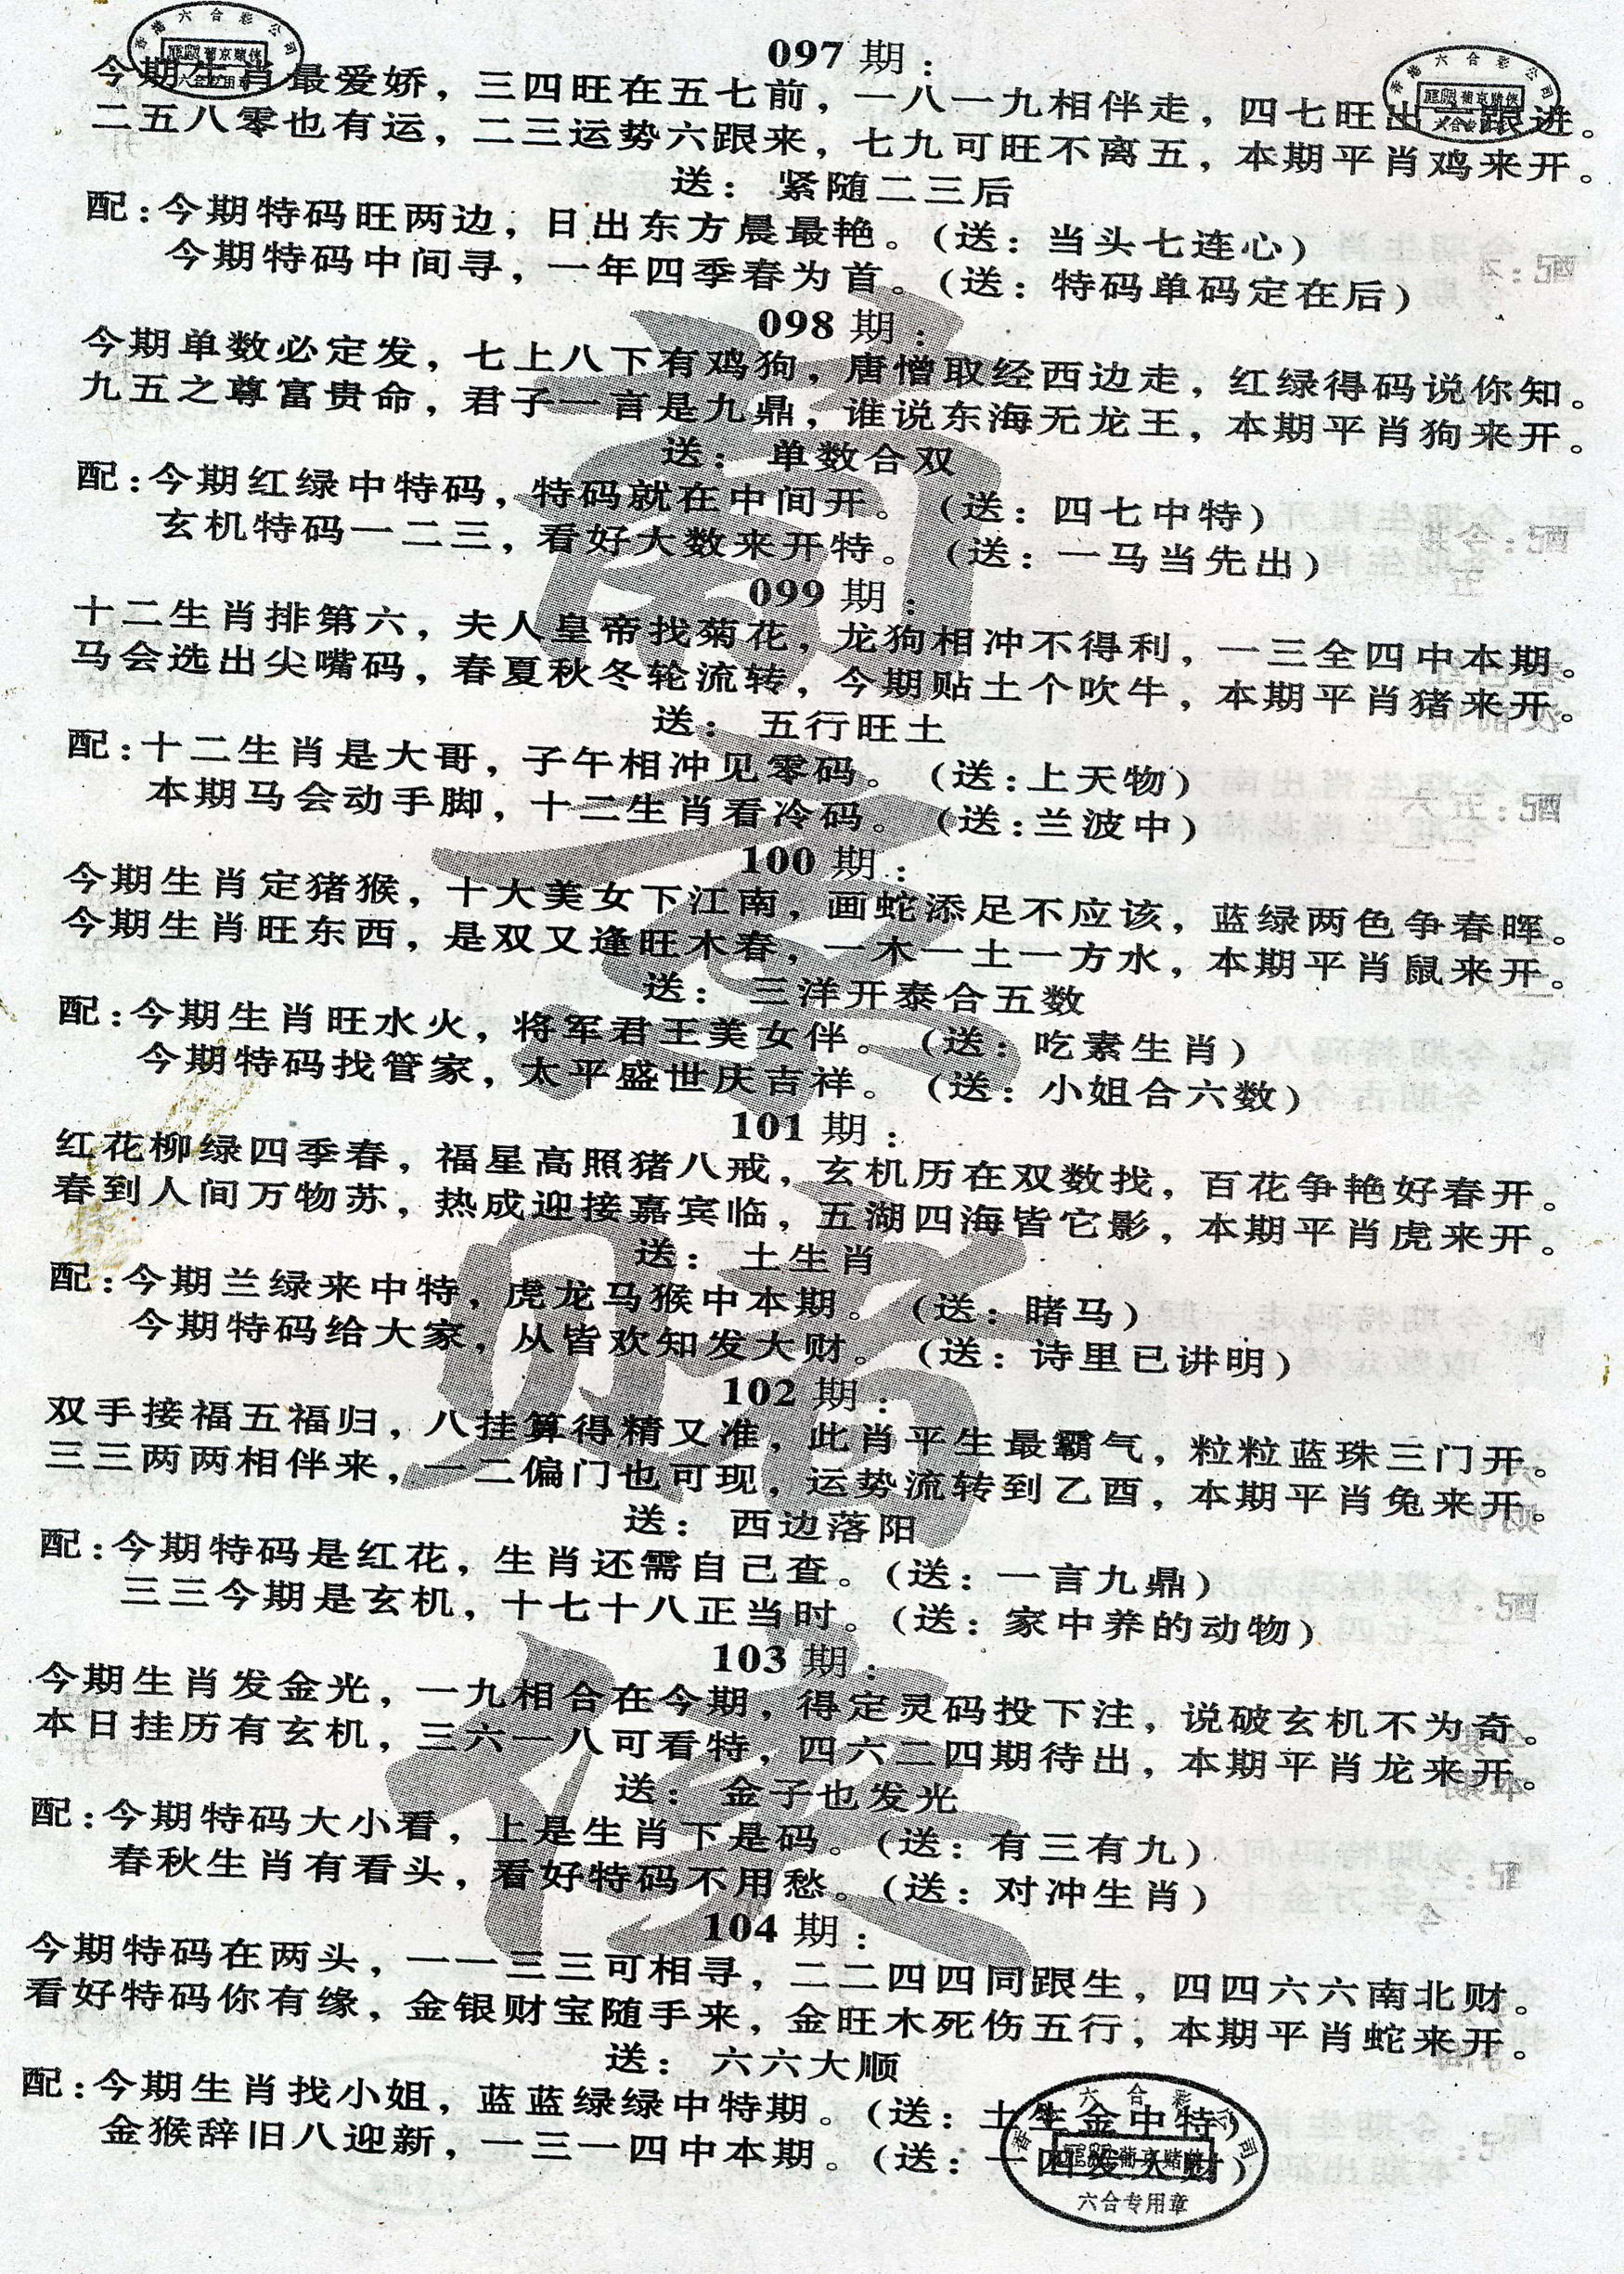 097期：
今期生肖最爱娇，三四旺在五七前，一八一九相伴走，四七旺出六跟进。
二五八零也有运，二三运势六跟来，七九可旺不离五，本期平肖鸡来开。
送：紧随二三后
配：今期特码旺两边，日出东方晨最艳。（送：当头七连心）
今期特码中间寻，一年四季春为首。（送：特码单码定在后）
098期：
今期单数必定发，七上八下有鸡狗，唐憎取经西边走，红绿得码说你知。
九五之尊富贵命，君子一言是九鼎，谁说东海无龙王，本期平肖狗来开。
送：单数合双
配：今期红绿中特码，特码就在中间开。（送：四七中特）
玄机特码一二三，看好大数来开特。（送：一马当先出）
099期：
十二生肖排第六，夫人皇帝找菊花，龙狗相冲不得利，一三全四中本期。
马会选出尖嘴码，春夏秋冬轮流转，今期贴土个吹牛，本期平肖猪来开。
送：五行旺土
配：十二生肖是大哥，子午相冲见零码。（送：上天物）
本期马会动手脚，十二生肖看冷码。（送：兰波中）
100期：
今期生肖定猪猴，十大美女下江南，画蛇添足不应该，蓝绿两色争春晖。
今期生肖旺东西，是双又逢旺木春，一木一土一方水，本期平肖鼠来开。
送：三洋开泰合五数
配：今期生肖旺水火，将军君王美女伴。（送：吃素生肖）
今期特码找管家，太平盛世庆吉祥。（送：小姐合六数）
101期：
红花柳绿四季春，福星高照猪八戒，玄机历在双数找，百花争艳好春开。
春到人间万物苏，热成迎接嘉宾临，五湖四海皆它影，本期平肖虎来开。
送：土生肖
配：今期兰绿来中特，虎龙马猴中本期。（送：睹马）
今期特码给大家，从皆欢知发大财。（送：诗里已讲明）
102期：
双手接福五福归，八挂算得精又准，此肖平生最霸气，粒粒蓝珠三门开。
三三两两相伴来，一二偏门也可现，运势流转到乙酉，本期平肖兔来开。
送：西边落阳
配：今期特码是红花，生肖还需自己查。（送：一言九鼎）
三三今期是玄机，十七十八正当时。（送：家中养的动物）
103期：
今期生肖发金光，一九相合在今期，得定灵码投下注，说破玄机不为奇。
本日挂历有玄机，三六一八可看特，四六二四期待出，本期平肖龙来开。
送：金子也发光
配：今期特码大小看，上是生肖下是码。（送：有三有九）
春秋生肖有看头，看好特码不用愁。（送：对冲生肖）
104期：
今期特码在两头，一一三三可相寻，二二四四同跟生，四四六六南北财。
看好特码你有缘，金银财宝随手来，金旺木死伤五行，本期平肖蛇来开。
送：六六大顺
配：今期生肖找小姐，蓝蓝绿绿中特期。（送：土生金中特）
金猴辞旧八迎新，一三一四中本期。（送：一四发大财）
香港六合彩公司
葡京赌侠
六合专用章